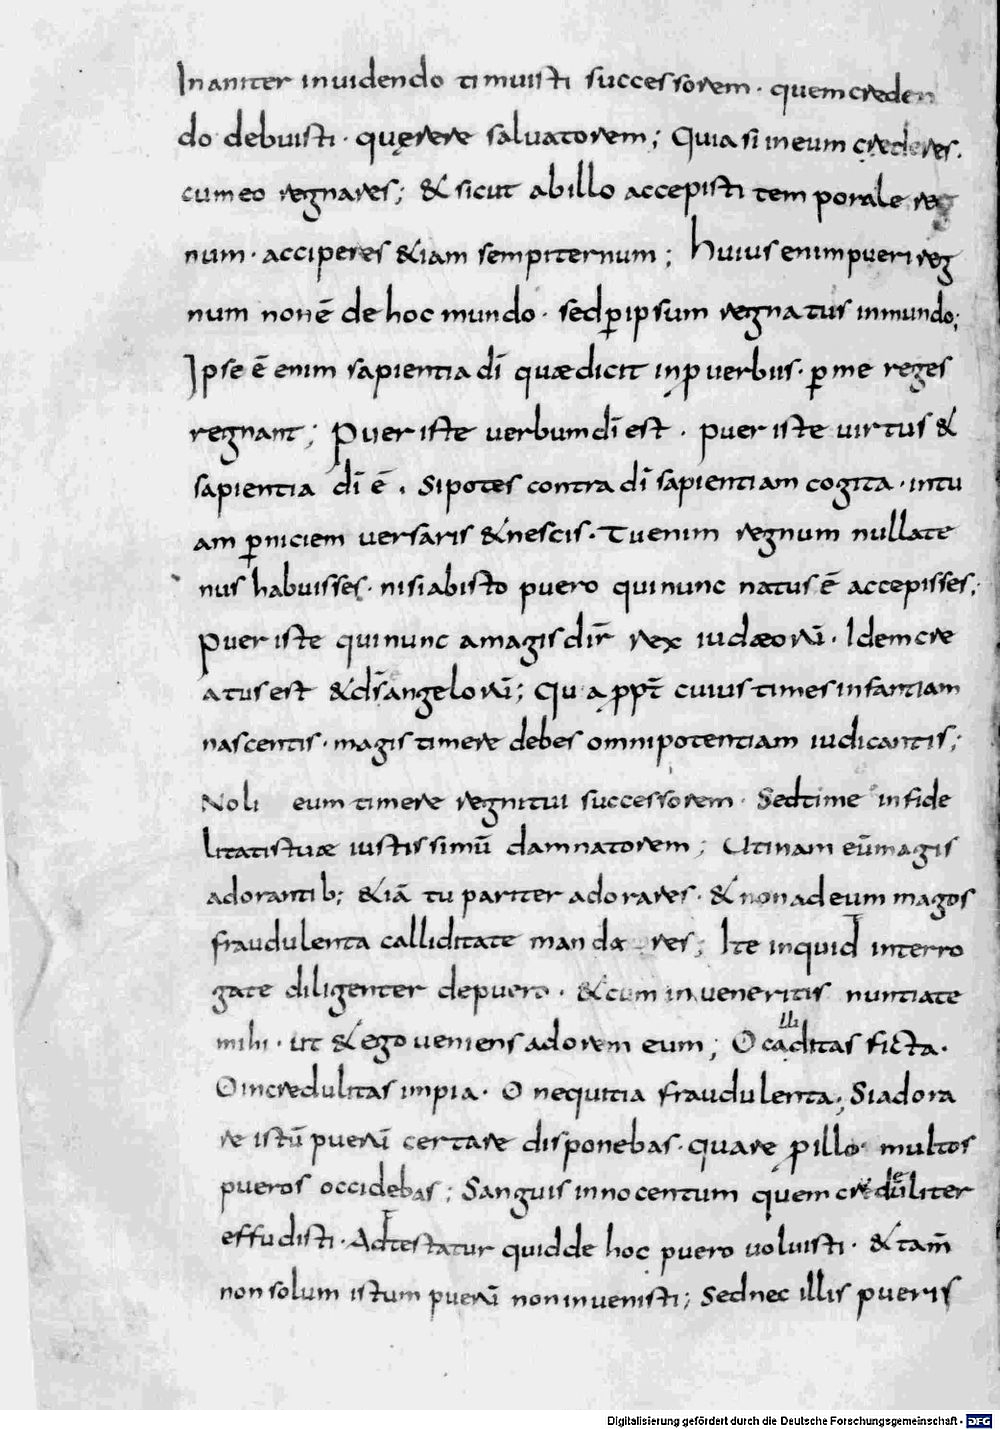 Inaniter inuidendo timuisti successorem · quem creden
do debuisti · quęrere saluatorem ; Quia si in eum crederes .
cum eo regnares ; & sicut ab illo accepisti temporale reg
num · acciperes &iam sempiternum ; huius enim pueri reg
num non ē de hoc mundo · sed ꝑ ipsum regnatus in mundo ;
Ipse ē enim sapientia dī quæ dicit in ꝓuerbiis · ꝑ me reges
regnant ; Puer iste uerbum dī est . puer iste uirtus &
sapientia dī ē . Si potes contra dī sapientiam cogita · in tu
am ꝑniciem uersaris & nescis · Tu enim regnum nullate
nus habuisses · nisi ab isto puero qui nunc natus ē accepisses ;
Puer iste qui nunc a magis dir̄ rex iudæorū · Idem cre
atus est & dn̄s angelorū ; Qua ꝓpt̄ cuius times infantiam
nascentis · magis timere debes omnipotentiam iudicantis ;
Noli eum timere regni tui successorem · Sed time infide
litatis tuæ iustissimū damnatorem ; Utinam eū magis
adorantib; &iā tu pariter adorares · & non ad eum magos
fraudulenta calliditate mandares ; Ite inquid interro
gate diligenter de puero · & cum inueneritis nuntiate
mihi · ut & ego ueniens adorem eum ; O callıditas ficta ·
O incredulitas impia · O nequitia fraudulenta ; Si adora
re istū puerū certare disponebas · quare ꝓ illo multos
pueros occidebas ; Sanguis innocentum quem crudeliter
effudisti · Adtestatur quid de hoc puero uoluisti · & tam̄
non solum istum puerū non inuenisti ; Sed nec illis pueris
Digitalisierung gefördert durch die Deutsche Forschungsgemeinschaft - DFG